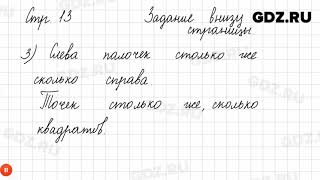 Стр. 13 Задание внизу GDZ.RU
страницы
3) Слева палочек столько же
сколько справа
Точек столько же, сколько
квадратов.